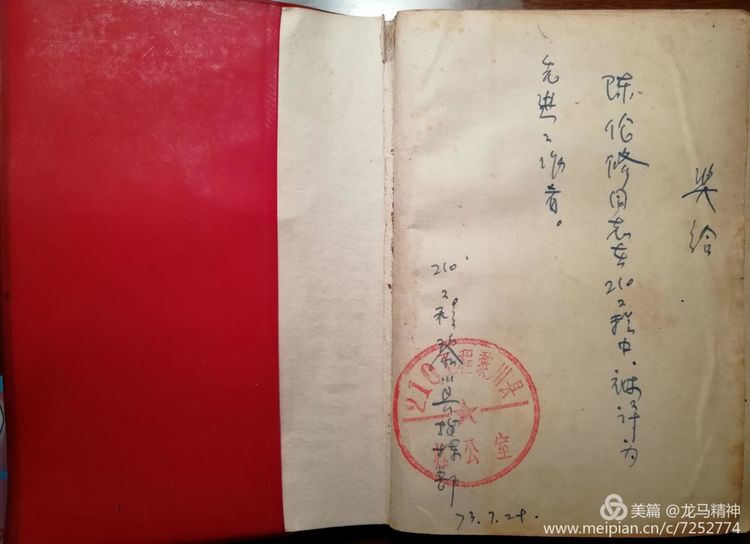 奖给
陈伦修同志在210工程中,被评为
先进工作者。
210工程黎川县指挥部
210工程黎川县
办公室
73.7.24.
美篇 @龙马精神
www.meipian.cn/c/7252774